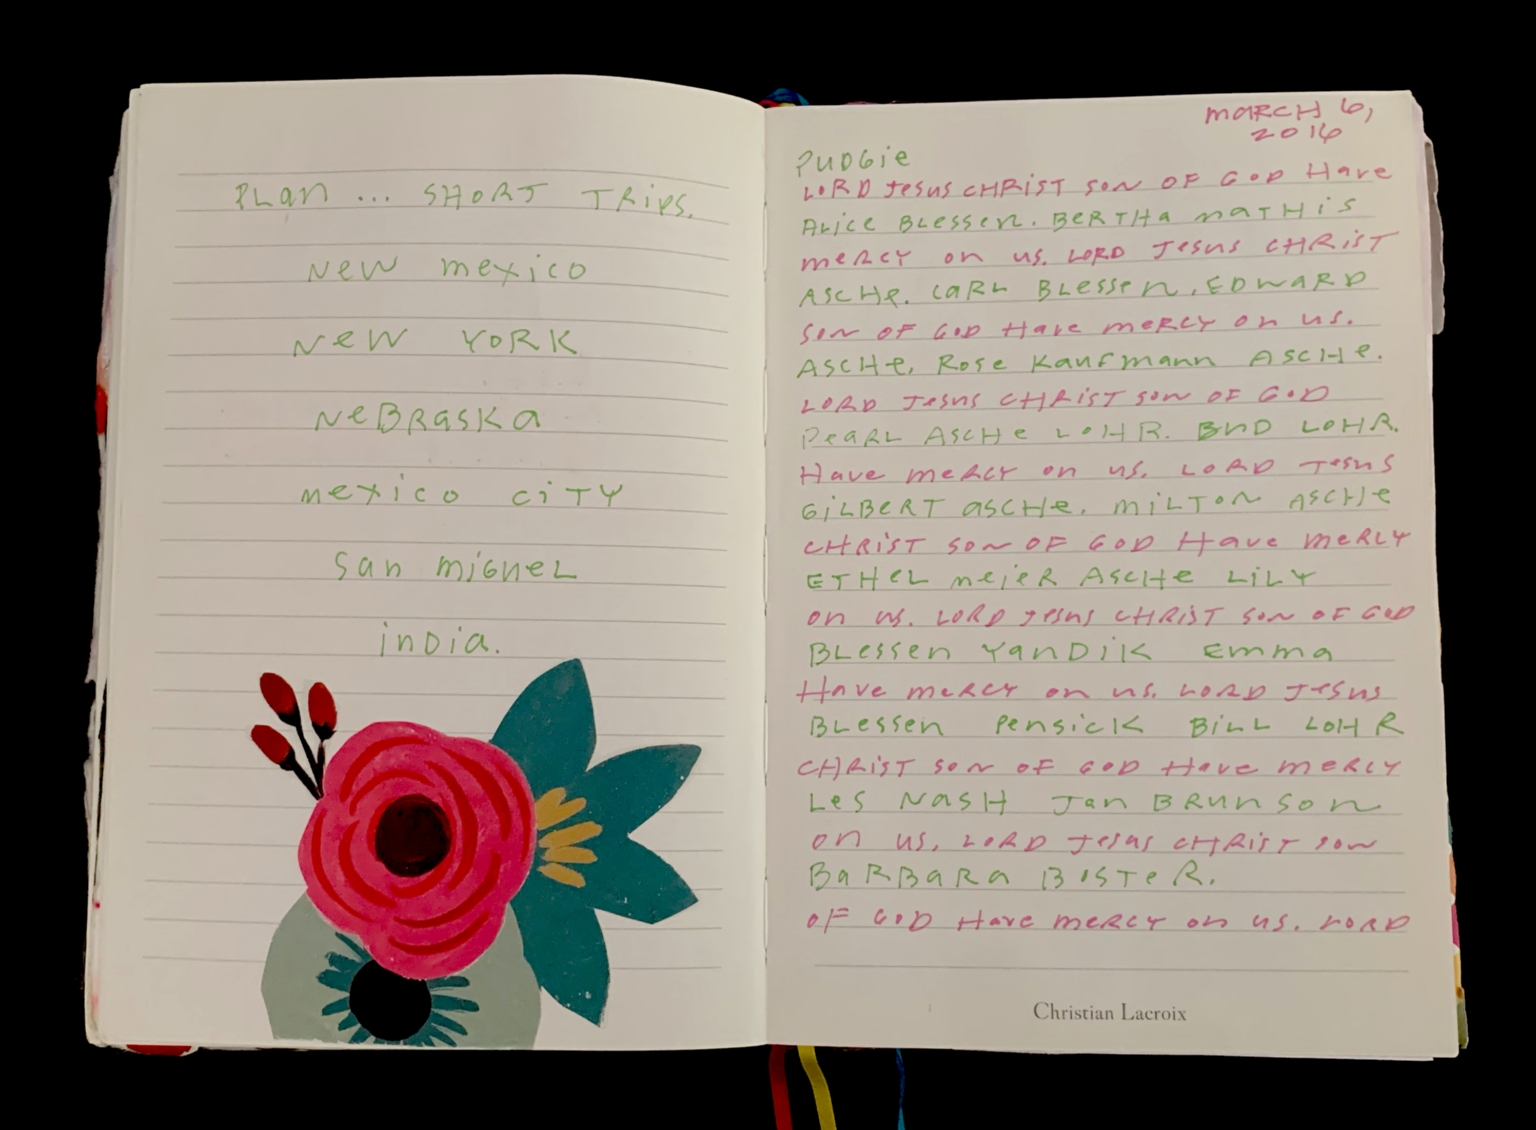 PLan ... SHORT TRips.
New mexico
New YORK
NeBRaska
mexico ciTY
San miGueL
inDia.
maRCH 6,
2016
PUDGie
LORD Jesus CHRiST son OF GOD Have
ALice BLessen. BeRTHa maTHis
meRCY on us. LORD Jesus CHRiST
ASCHe. CaRL BLessen. EDWARD
son OF GOD Have meRCY on us.
ASCHe. Rose Kaufmann ASCHe.
LORD Jesus CHRiST son OF GOD
PeaRL ASCHe LOHR. BUD LOHR.
Have meRCY on us. LORD Jesus
GiLBeRT asCHe. miLTon ASCHe
CHRiST son OF GOD Have meRCY
ETHeL meieR ASCHe LiLY
on us. LORD Jesus CHRiST son OF GOD
BLessen YanDiK Emma
Have meRCY on us. LORD Jesus
BLessen Pensick BiLL LOHR
CHRiST son OF GOD Have meRCY
Les NasH Jan BRunson
on us. LORD Jesus CHRiST son
BaRBaRa BosTeR.
OF GOD Have meRCY on us. LORD
Christian Lacroix